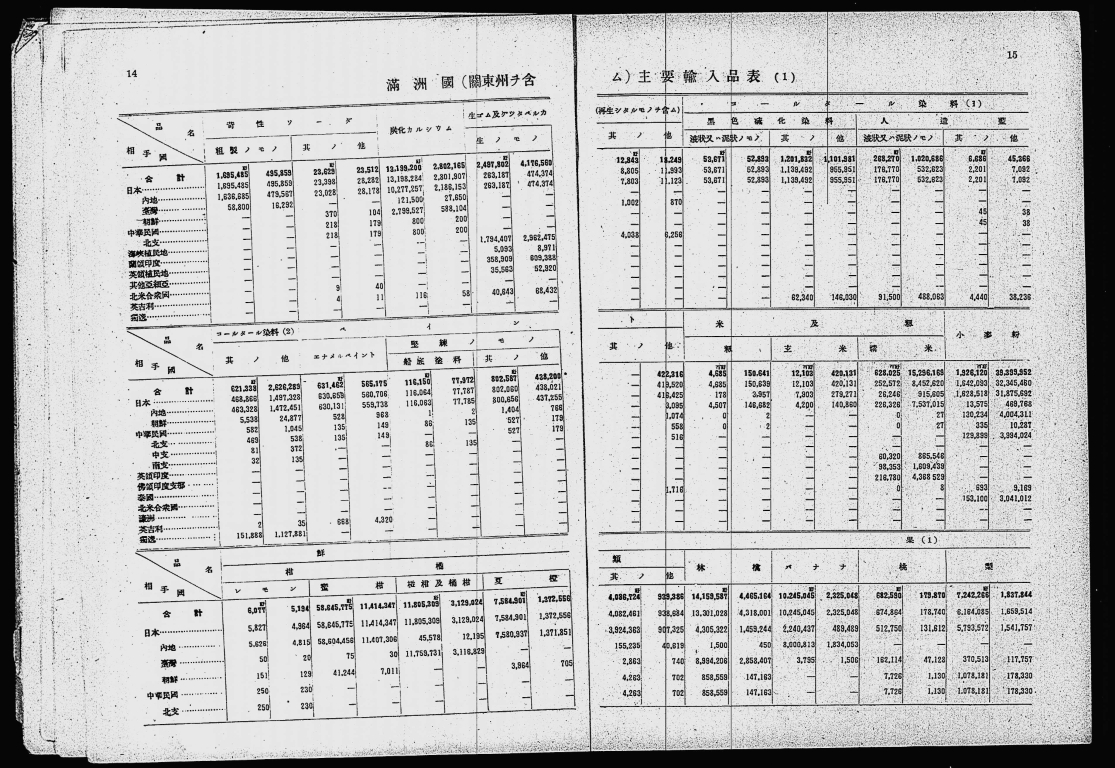 14
滿洲國（關東州ヲ含
品名
相手國
苛性ソーダ
粗製ノモノ
其ノ他
炭化カルシウム
生ゴム及グツタペルカ
生ノモノ
合計 1,695,485 495,859 23,629 23,512 13,199,200 2,802,165 2,497,802 4,176,560
日本 1,695,485 495,859 23,398 28,282 13,198,284 2,801,907 263,187 474,374
内地 1,636,685 479,567 23,028 28,178 10,277,257 2,186,153 263,187 474,374
臺灣 58,800 16,292 — — 121,500 27,650 — —
朝鮮 — — 370 104 2,799,527 588,104 — —
中華民國 — — 218 179 800 200 — —
北支 — — 218 179 800 200 — —
海峽植民地 — — — — — — 1,794,407 2,962,475
蘭領印度 — — — — — — 5,093 8,971
英領植民地 — — — — — — 358,909 609,388
其他亞細亞 — — — — — — 35,563 52,920
北米合衆國 — — 9 40 — —
英吉利 — — 4 11 116 58 40,643 68,432
獨逸
品名
相手國
コールタール染料(2)
其ノ他
ペイン
エナメルペイント
堅練ノモノ
船底塗料
其ノ他
合計 621,338 2,626,285 631,462 565,175 116,150 77,972 802,587 438,200
日本 468,866 1,497,328 630,659 560,706 116,064 77,787 802,060 438,021
内地 463,328 1,472,451 630,131 559,738 116,063 77,785 800,656 437,255
朝鮮 5,538 24,877 528 968 1 2 1,404 766
中華民國 582 1,045 135 149 86 135 527 179
北支 469 538 135 149 — — 527 179
中支 81 372 — — 86 135 — —
南支 32 135 — — — — — —
英領印度
佛領印度支那
泰國
北米合衆國
濠洲
英吉利 2 35 668 4,320 — — — —
獨逸 151,888 1,127,881 — — — — — —
品名
相手國
鮮
柑橘
レモン
蜜柑
椪柑及橘柑
夏橙
合計 6,077 5,194 58,645,775 11,414,347 11,805,309 3,129,024 7,584,901 1,372,556
日本 5,827 4,964 58,645,775 11,414,347 11,805,309 3,129,024 7,584,901 1,372,556
内地 5,626 4,815 58,604,456 11,407,306 45,578 12,195 7,580,937 1,371,851
臺灣 50 20 75 30 11,759,731 3,116,829 — —
朝鮮 151 129 41,244 7,011 — — 3,964 705
中華民國 250 230 — — — — — —
北支 250 230 — — — — — —
15
ム）主要輸入品表(1)
(再生シタルモノヲ含ム)
其ノ他
コールタール染料(1)
黒色硫化染料
液狀又ハ泥狀ノモノ
其ノ他
人造藍
液狀又ハ泥狀ノモノ
其ノ他
12,843 18,249 53,671 52,893 1,201,832 1,101,981 268,270 1,020,686 6,686 45,366
8,805 11,993 53,671 52,893 1,139,492 955,951 176,770 532,623 2,201 7,092
7,803 11,123 53,671 52,893 1,139,492 955,951 176,770 532,623 2,201 7,092
1,002 870 — — — — — — 45 38
— — — — — — — — 45 38
4,038 6,256 — — — — — — — —
— — — — 62,340 146,030 91,500 488,063 4,440 38,236
ト
其ノ他
米及籾
籾
玄米
糯米
小麥粉
— 422,316 4,685 150,641 12,103 420,131 628,025 15,296,168 1,926,120 39,393,952
— 419,520 4,685 150,639 12,103 420,131 252,572 8,457,620 1,642,093 32,345,460
— 416,425 178 3,957 7,903 279,271 26,246 915,605 1,628,518 31,875,692
— 3,095 4,507 146,682 4,200 140,860 226,326 7,537,015 13,575 469,768
— 1,074 0 2 — — 0 27 130,234 4,004,311
— 558 0 2 — — 0 27 335 10,287
— 516 — — — — — — 129,899 3,994,024
— — — — — — 60,320 865,546 — —
— — — — — — 98,353 1,609,439 — —
— — — — — — 216,780 4,368,529 — —
— 1,716 — — — — 0 8 693 9,169
— — — — — — — — 153,100 3,041,012
果(1)
類
其ノ他
林檎
バナナ
桃
梨
4,086,724 939,386 14,159,587 4,465,164 10,245,045 2,325,048 682,590 179,870 7,242,266 1,837,844
4,082,461 938,684 13,301,028 4,318,001 10,245,045 2,325,048 674,864 178,740 6,164,085 1,659,514
3,924,363 907,325 4,305,322 1,459,244 2,240,437 489,489 512,750 131,612 5,793,572 1,541,757
155,235 40,619 1,500 450 8,000,813 1,834,053 — — — —
2,863 740 8,994,206 2,858,407 3,795 1,506 162,114 47,128 370,513 117,757
4,263 702 858,559 147,163 — — 7,726 1,130 1,078,181 178,330
4,263 702 858,559 147,163 — — 7,726 1,130 1,078,181 178,330